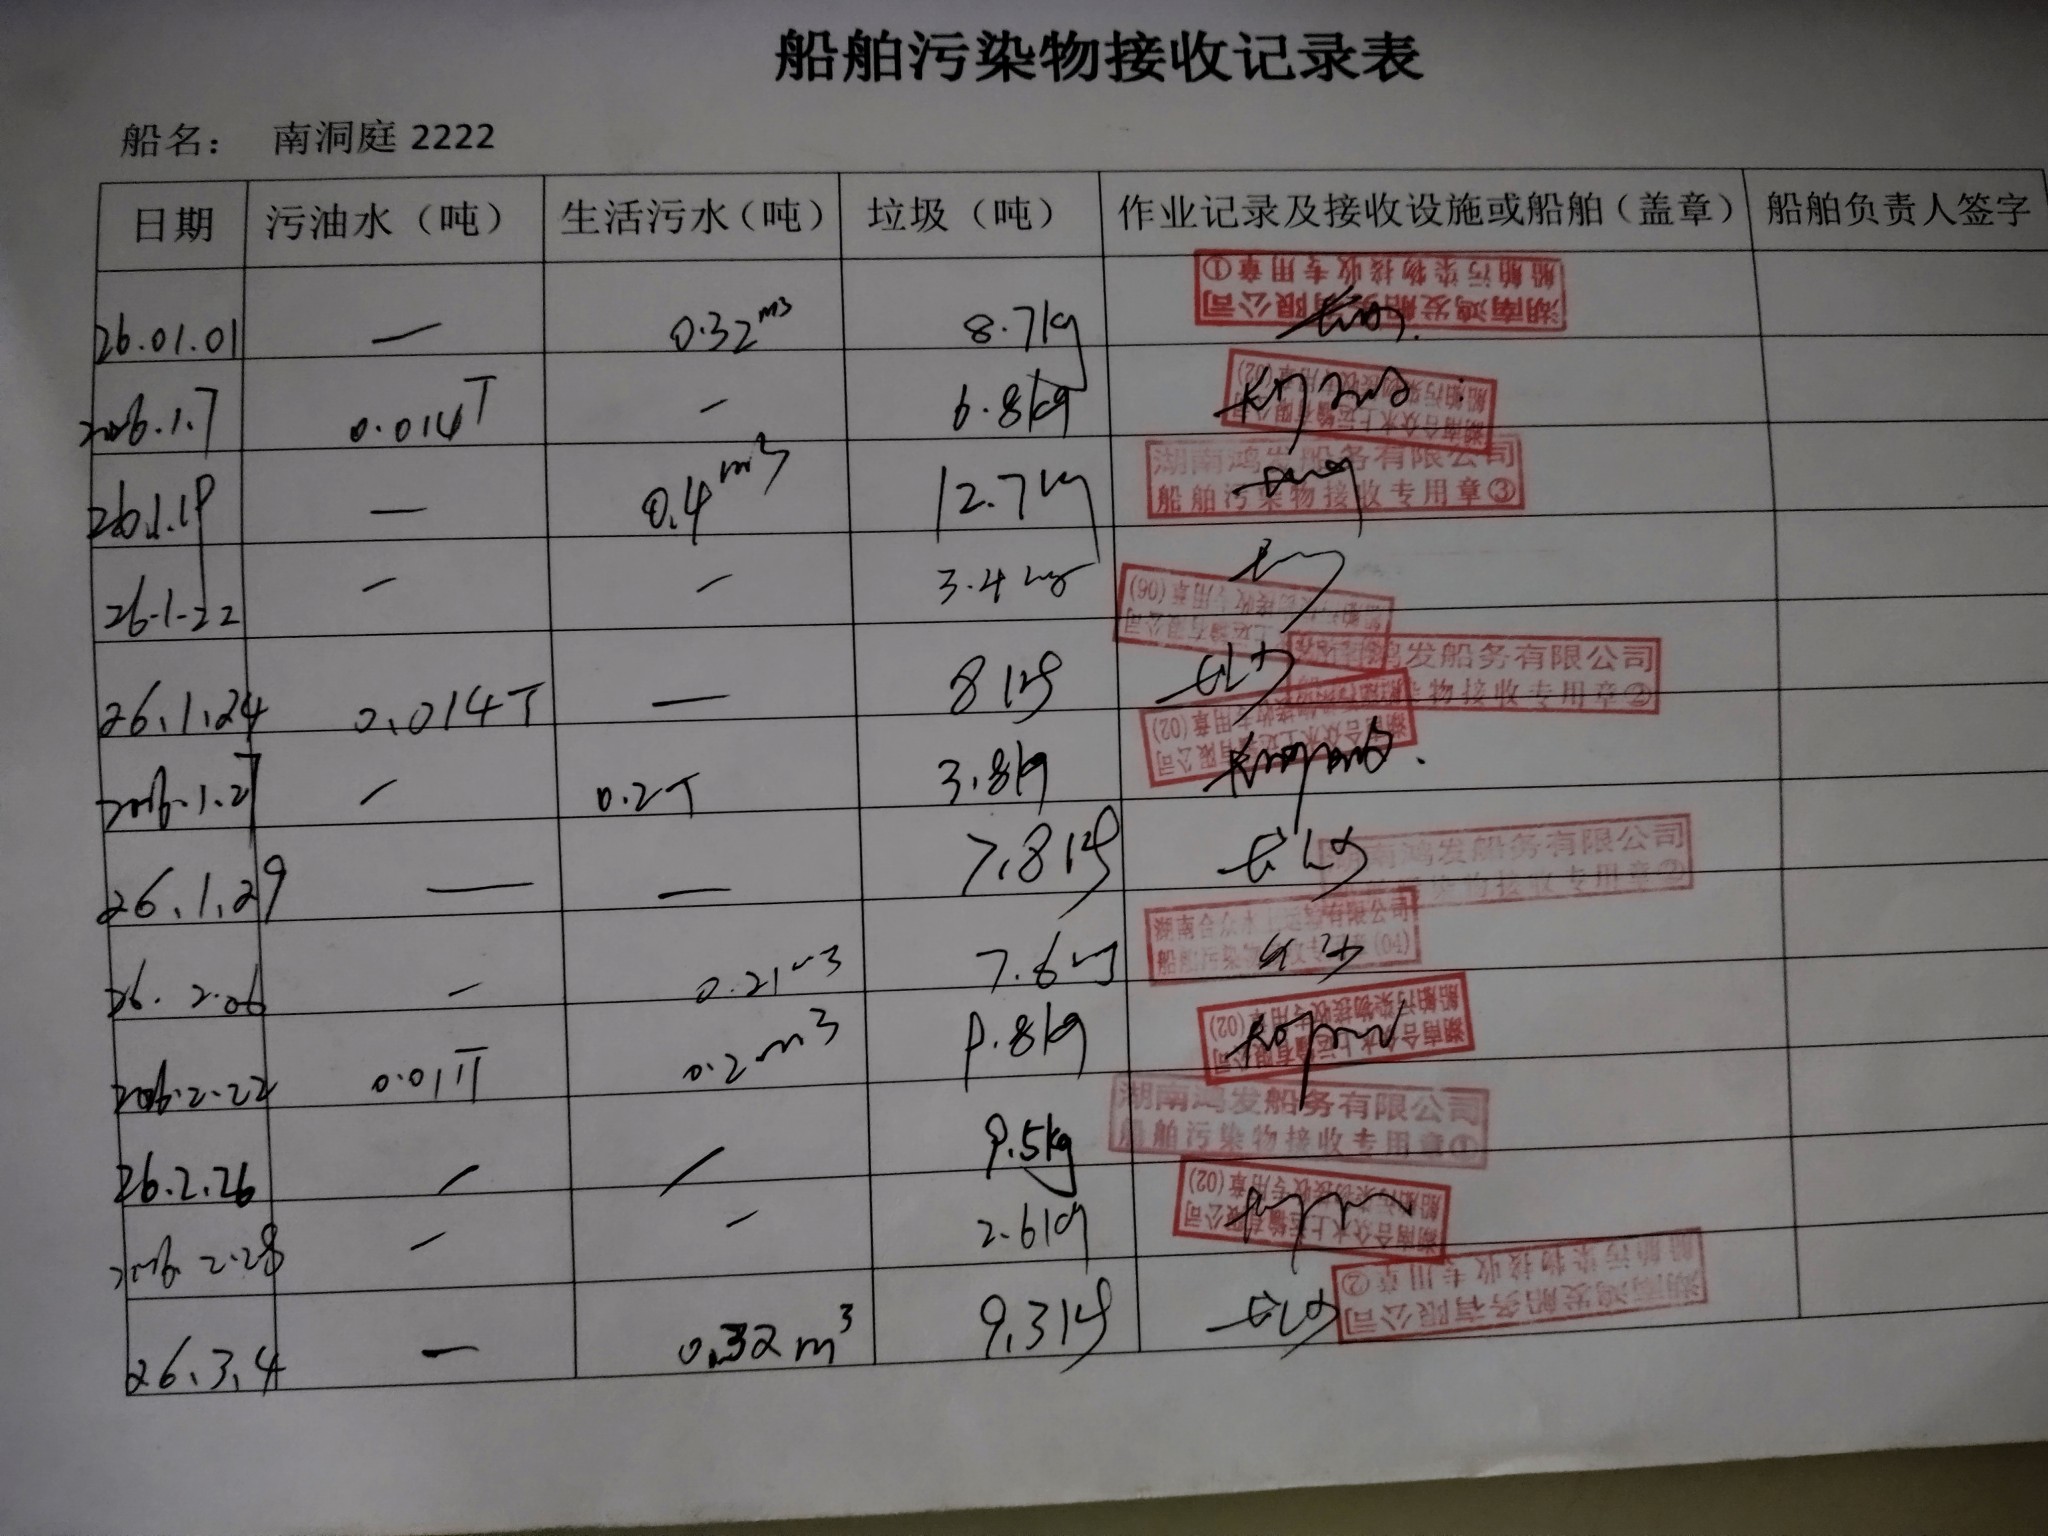 船舶污染物接收记录表
船名： 南洞庭 2222
日期 污油水（吨） 生活污水（吨） 垃圾（吨） 作业记录及接收设施或船舶（盖章） 船舶负责人签字
26.01.01 — 0.32m³ 8.7kg 湖南鸿发船务有限公司
船舶污染物接收专用章①
2026.1.7 0.014T — 6.8kg 湖南合众水上运输有限公司
船舶污染物接收专用章(02)
26.1.19 — 0.4m³ 12.7kg 湖南鸿发船务有限公司
船舶污染物接收专用章③
26.1.22 — — 3.4kg
专用章(06)
26.1.24 0.014T — 8kg 鸿发船务有限公司
物接收专用章②
2026.1.27 — 0.2T 3.8kg 湖南合众水上运输有限公司
专用章(02)
26.1.29 — — 7.8kg 湖南鸿发船务有限公司
接收专用章②
26.2.06 — 0.21m³ 7.6kg 湖南合众水上运输有限公司
船舶污染物接收专用章
2026.2.22 0.01T 0.2m³ 9.8kg 湖南合众水上运输有限公司
船舶污染物接收专用章(02)
26.2.26 / / 9.5kg 湖南鸿发船务有限公司
船舶污染物接收专用章①
2026.2.28 — — 2.6kg 湖南合众水上运输有限公司
船舶污染物接收专用章(02)
26.3.4 — 0.32m³ 9.3kg 湖南鸿发船务有限公司
船舶污染物接收专用章②